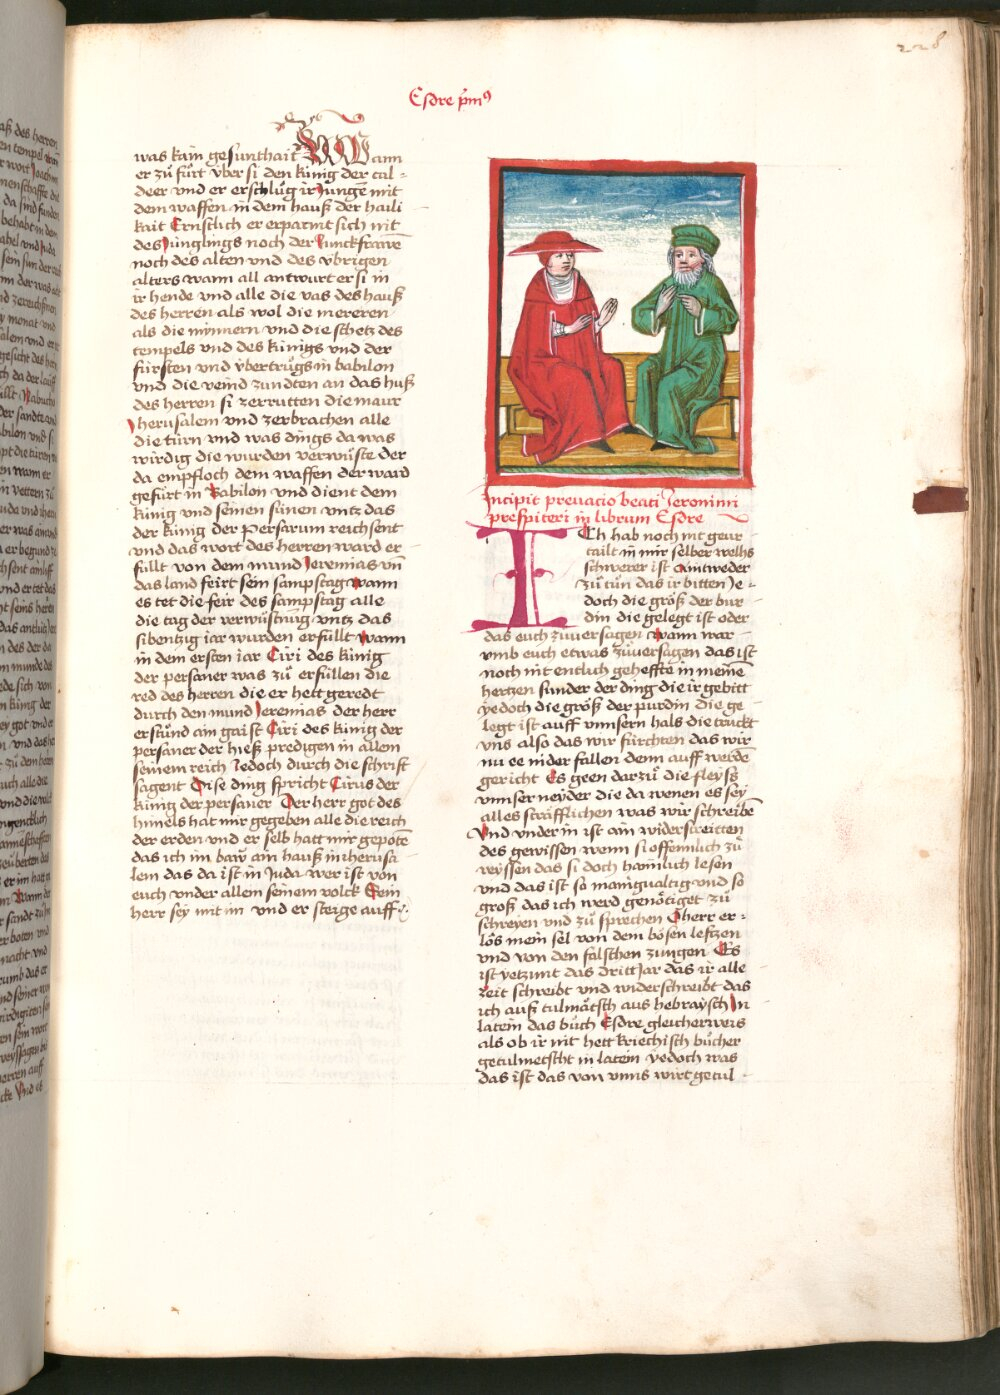 228
Esdre pm9
was kain gesunthait Wann
er zů fůrt vber si den kunig der cal-
deer vnd er erschlůg ir Jungē mit
dem waffen in dem hauß der haili
kait Ernstlich er erparmt sich nit
des Jůnglings noch der Junckfrawē
noch des alten vnd des vbrigen
alters wann all antwurt er si in
ir hende vnd alle die vas des hauß
des herren als wol die mereren
als die mynnern vnd die schetz des
tempels vnd des kůnigs vnd der
fürsten vnd vbertrůgs in babilon
vnd die veind zundten an das huß
des herren si zerrutten die maur
Jherusalem vnd zerbrachen alle
die türn vnd was dings da was
wirdig die wurden verwüste der
da empfloch dem waffen der ward
gefürt in Babilon vnd dient dem
künig vnd seinen sünen vntz das
der künig der Persarum reichsent
vnd das wort des herren ward er-
füllt von dem mund Jeremias vn̄
das land feirt sein sampstag wann
es tet die feir des sampstag alle
die tag der verwüstung vntz das
sibentzig iar wurden erfüllt Wann
in dem ersten iar Ciri des künig
der persaner was zů erfüllen die
red des herren die er hett geredt
durch den mund Jeremias der herr
erstůnd ain gaist Ciri des künig der
persaner der hieß predigen in allem
seinem reich Jedoch durch die schrift
sagent Dise ding spricht Cirus der
künig der persaner Der herr got des
himels hat mir gegeben alle die reich
der erden vnd er selb hatt mir gepotē
das ich im baw ain hauß in iherusa
lem das da ist in Juda wer ist von
euch vnder allem seinem volck Sein
herr sey mit im vnd er steige auff
Incipit prevacio beati Jeronimi
prespiteri in librum Esdre
ICh hab noch nit geur
tailt in mir selber welhs
schwerer ist Aintweder
zů tůn das ir bitten Je-
doch die größ der bur
din die gelegt ist oder
das euch zuuersagen Wann war
vmb euch etwas zůuersagen das ist
noch nit entlich geheffte in meinē
hertzen sunder der ding die ir gebitt
yedoch die größ der purdin die ge
legt ist auff vnnsern hals die truckt
vns also das wir fürchten das wir
nu ee nider fallen denn auff werdē
gericht Es geen dar zů die fleyss
vnnser neyder die da wenen es sey
alles sträfflichen was wir schreibē
Vnd vnder in ist ain widerstreitten
des gewissen wenn si offennlich zů
reyssen das si doch haimlich lesen
vnd das ist so manigualtig vnd so
groß das ich werd genötiget zů
schreyen vnd zů sprechen O herr er-
lös mein sel von dem bösen lefftzen
vnd von den falschen zungen Es
ist yetzunt das dritt Jar das ir alle
zeit schreibt vnd widerschreibt das
ich auß tulmätsch aus hebraysch In
latein das bůch Esdre gleicherweis
als ob ir nit hett kriechisch bücher
getulmetscht in latein yedoch was
das ist das von vnns wirt getul